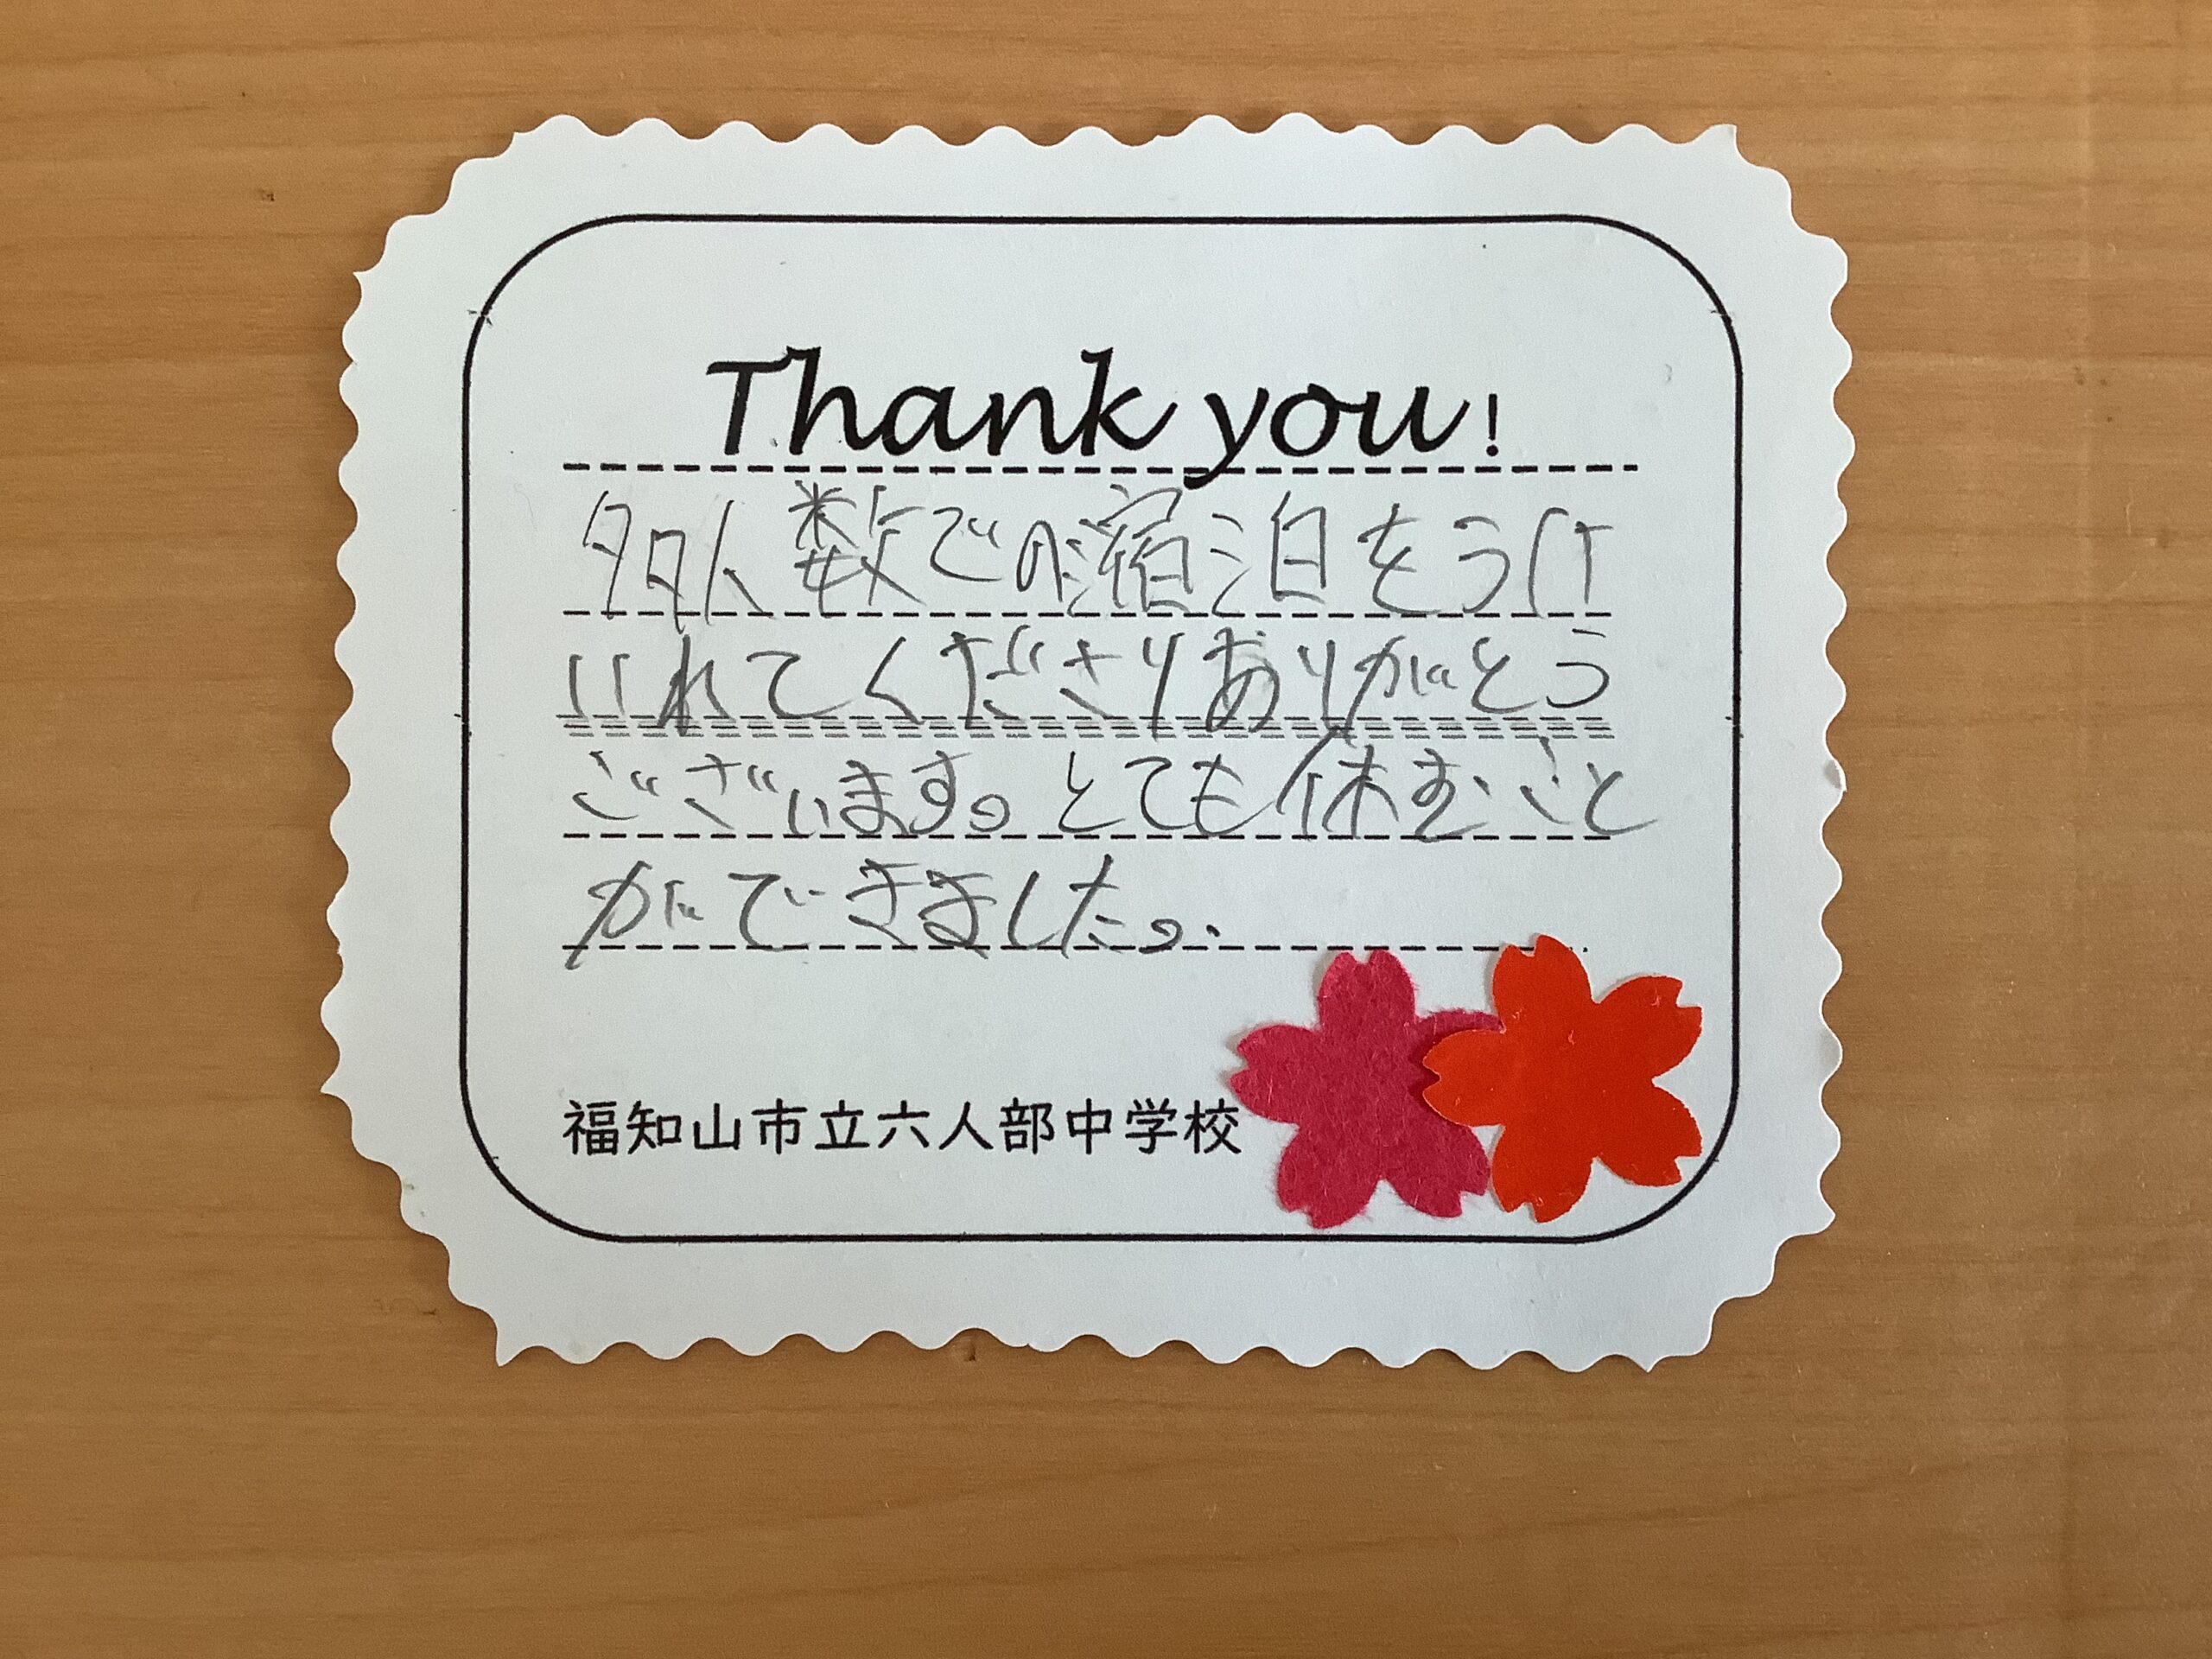 Thank you!
多人数での宿泊をうけ
いれてくださりありがとう
ございます。とても休むこと
ができました。
福知山市立六人部中学校